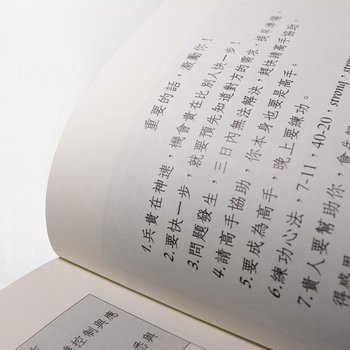 重要的話，激勵你！
1.兵貴在神速，機會貴在比別人快一步！
2.要快一步，就要預先知道對方的需求，提早準備。
3.問題發生，三日內無法解決，趕快請高手協助。
4.請高手協助，你本身也要是高手。
5.要成為高手，晚上要練功。
6.練功心法，7-11, 40-20, strong,
7.貴人要幫助你，會先
得感恩
控制與應
悉與